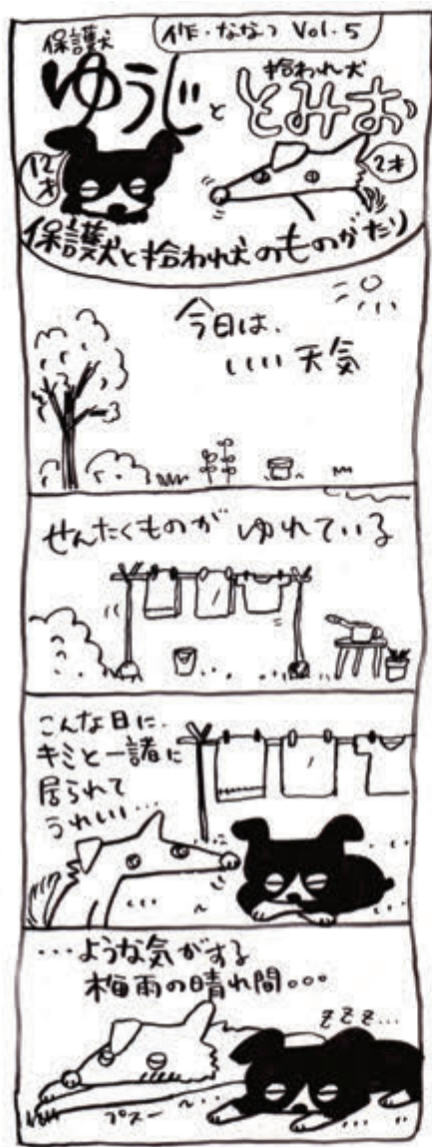 作・ななつ Vol.5
保護犬
ゆうじと
拾われ犬
とみお
12才
2才
保護犬と拾われ犬のものがたり
今日は、
いい天気
せんたくものが ゆれている
こんな日に、
キミと一諸に
居られて
うれしい…
…ような気がする
梅雨の晴れ間。。。
zzz…
プスー